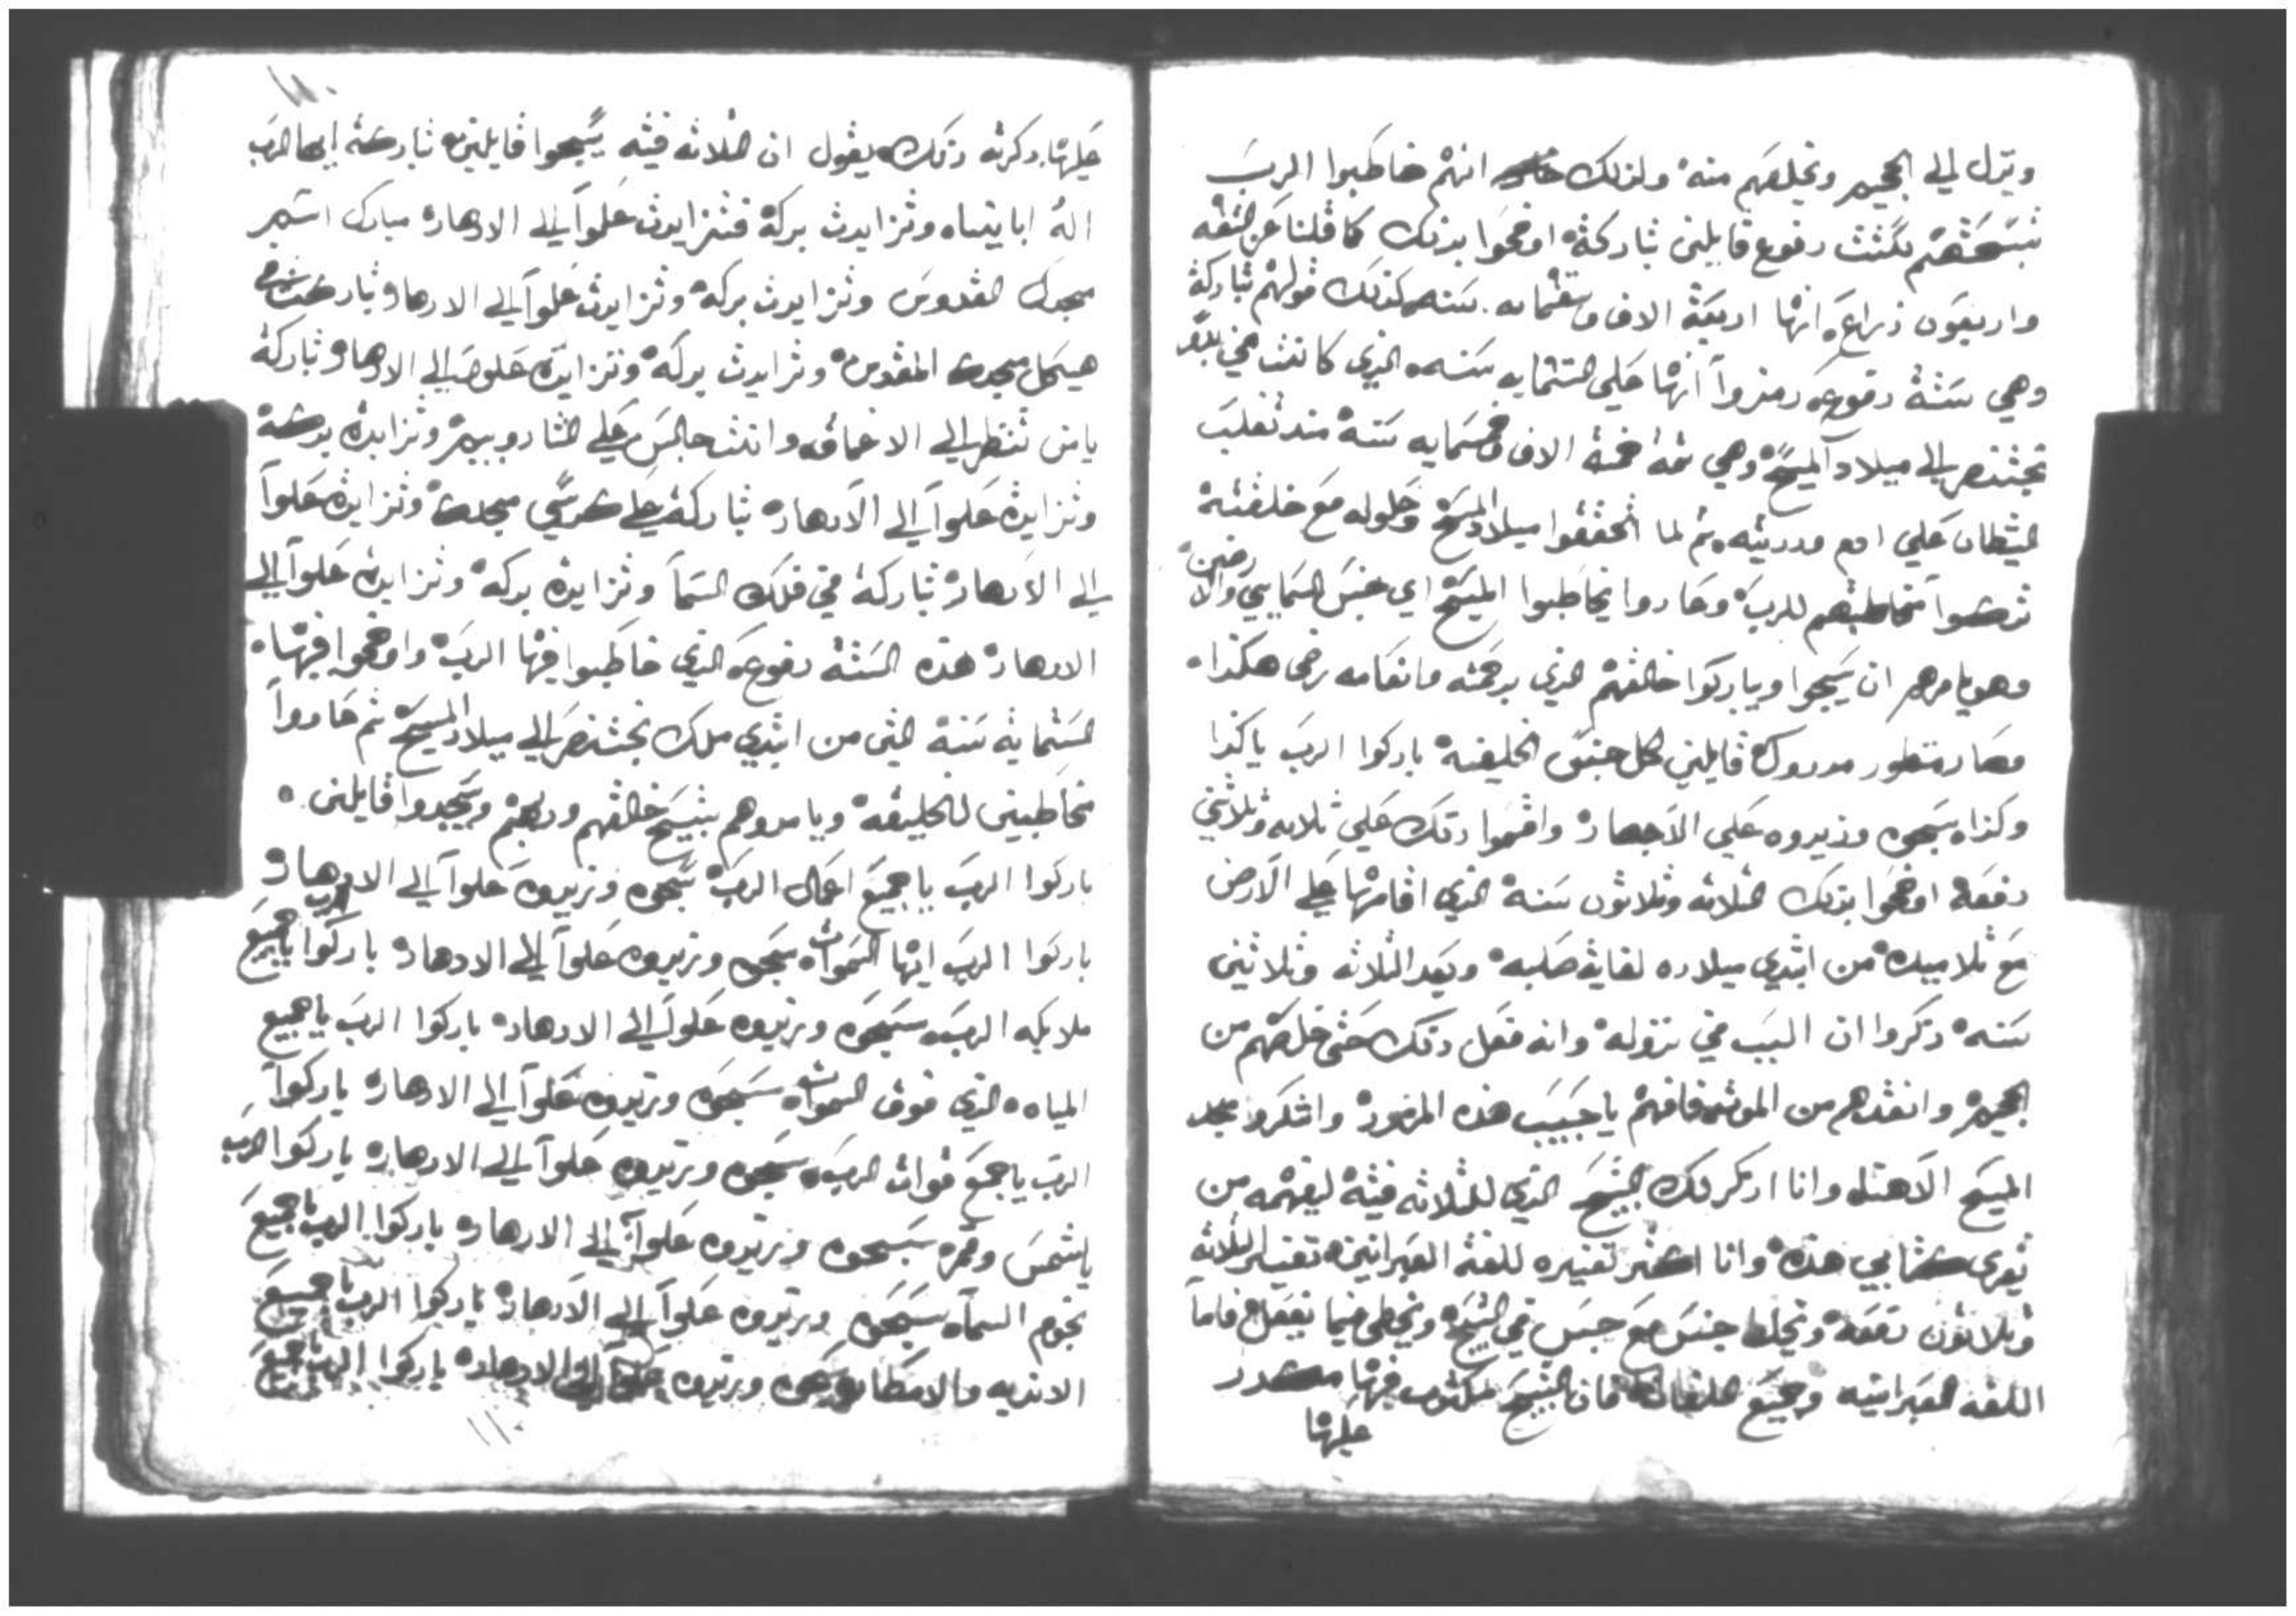 وينزل الي الجحيم ويخلصهم منه ولذلك انهم خاطبوا الرب
بتسبحتهم بستت دفوع قايلين تباركة اوضحوا بذلك كما قلنا عن التسعه
واربعون ذراع انها اربعة الاف وتسعمايه سنه كذلك قولهم تباركة
وهي ستة دفوع رمزوا انها علي الستمايه سنه الذي كانت من
بختنصر الي ميلاد المسيح وهي تمة خمسة الاف وخمسمايه سنة منذ تغلب
الشيطان علي ادم وذريته ثم لما اتحققوا ميلاد المسيح وحلوله مع خلقته
تركوا مخاطبتهم للرب وعادوا يخاطبوا المسيح اي جنس السمايي والارضين
وهو يامرهم ان يسبحوا ويباركوا خالقهم الذي برحمته وانعامه رضي هكذا
وصار منظور مدروك قايلين لكل جنس الخليقة باركوا الرب يا كذا
وكذا سبحوه وزيدوه علي الادهار واقسموا ذلك علي ثلاثه وثلاثين
دفعة اوضحوا بذلك الثلاثه وثلاثون سنة الذي اقامها علي الارض
مع تلاميده من ابتدي ميلاده لغاية صلبه وبعد الثلاثه وثلاثين
سنه ذكروا ان السبب في نزوله وانه فعل ذلك حتي خلصهم من
الجحيم وانقدهم من الموت فافهم يا حبيب هذه المرموزة واشكر مجد
المسيح الاهنا وانا اذكر لك التسبيح الذي للثلاثه فتية ليفهمه من
يقري كتابي هذه وانا اكتر تفسيره للغة العبرانيه تفسير الثلاثه
وثلاثون دفعة ويخلط جنس مع جنس في التسبيح ويخطي فيما يفعل فاما
اللغه العبرانيه وجميع اللغات فان التسبيح مكتوب فيها
عليها
عليها وذكرته وذلك يقول ان الثلاثه فتيه يسبحوا قايلين تباركت ايها الرب
اله اباينا وتزايدت بركة وتزايدت علوا الي الادهار مبارك اسم
مجدك القدوس وتزايدت بركة وتزايدت علوا الي الادهار وتباركت في
هيكل مجدك المقدس وتزايدت بركة وتزايدت علوا الي الادهار تباركة
يا من تنظر الي الاعماق وانت جالس علي الشاروبيم وتزايدة بركة
وتزايدة علوا الي الادهار تباركة علي كرسي مجدك وتزايدة علوا
الي الادهار تباركة في فلك السما وتزايدة بركة وتزايدة علوا الي
الادهار هذه الستة دفوع الذي خاطبوا فيها الرب واوضحوا فيها
الستماية سنة التي من ابتدي ملك بختنصر الي ميلاد المسيح ثم عادوا
مخاطبين للخليقه ويامروهم بتسبيح خالقهم وربهم وسجدوا قايلين
باركوا الرب يا جميع اعمال الرب سبحوه وزيدوه علوا الي الادهار
باركوا الرب ايها السموات سبحوه وزيدوه علوا الي الادهار باركوا الرب يا جميع
ملايكه الرب سبحوه وزيدوه علوا الي الادهار باركوا الرب يا جميع
المياه الذي فوق السموات سبحوه وزيدوه علوا الي الادهار باركوا
الرب يا جميع قوات الرب سبحوه وزيدوه علوا الي الادهار باركوا الرب
يا شمس وقمر سبحوه وزيدوه علوا الي الادهار باركوا الرب يا جميع
نجوم السماء سبحوه وزيدوه علوا الي الادهار باركوا الرب يا جميع
الانديه والامطار سبحوه وزيدوه علوا الي الادهار باركوا الرب يا جميع